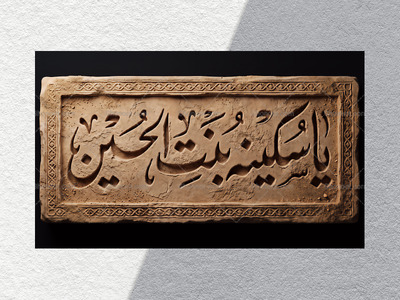 يا سكينه بنت الحسين